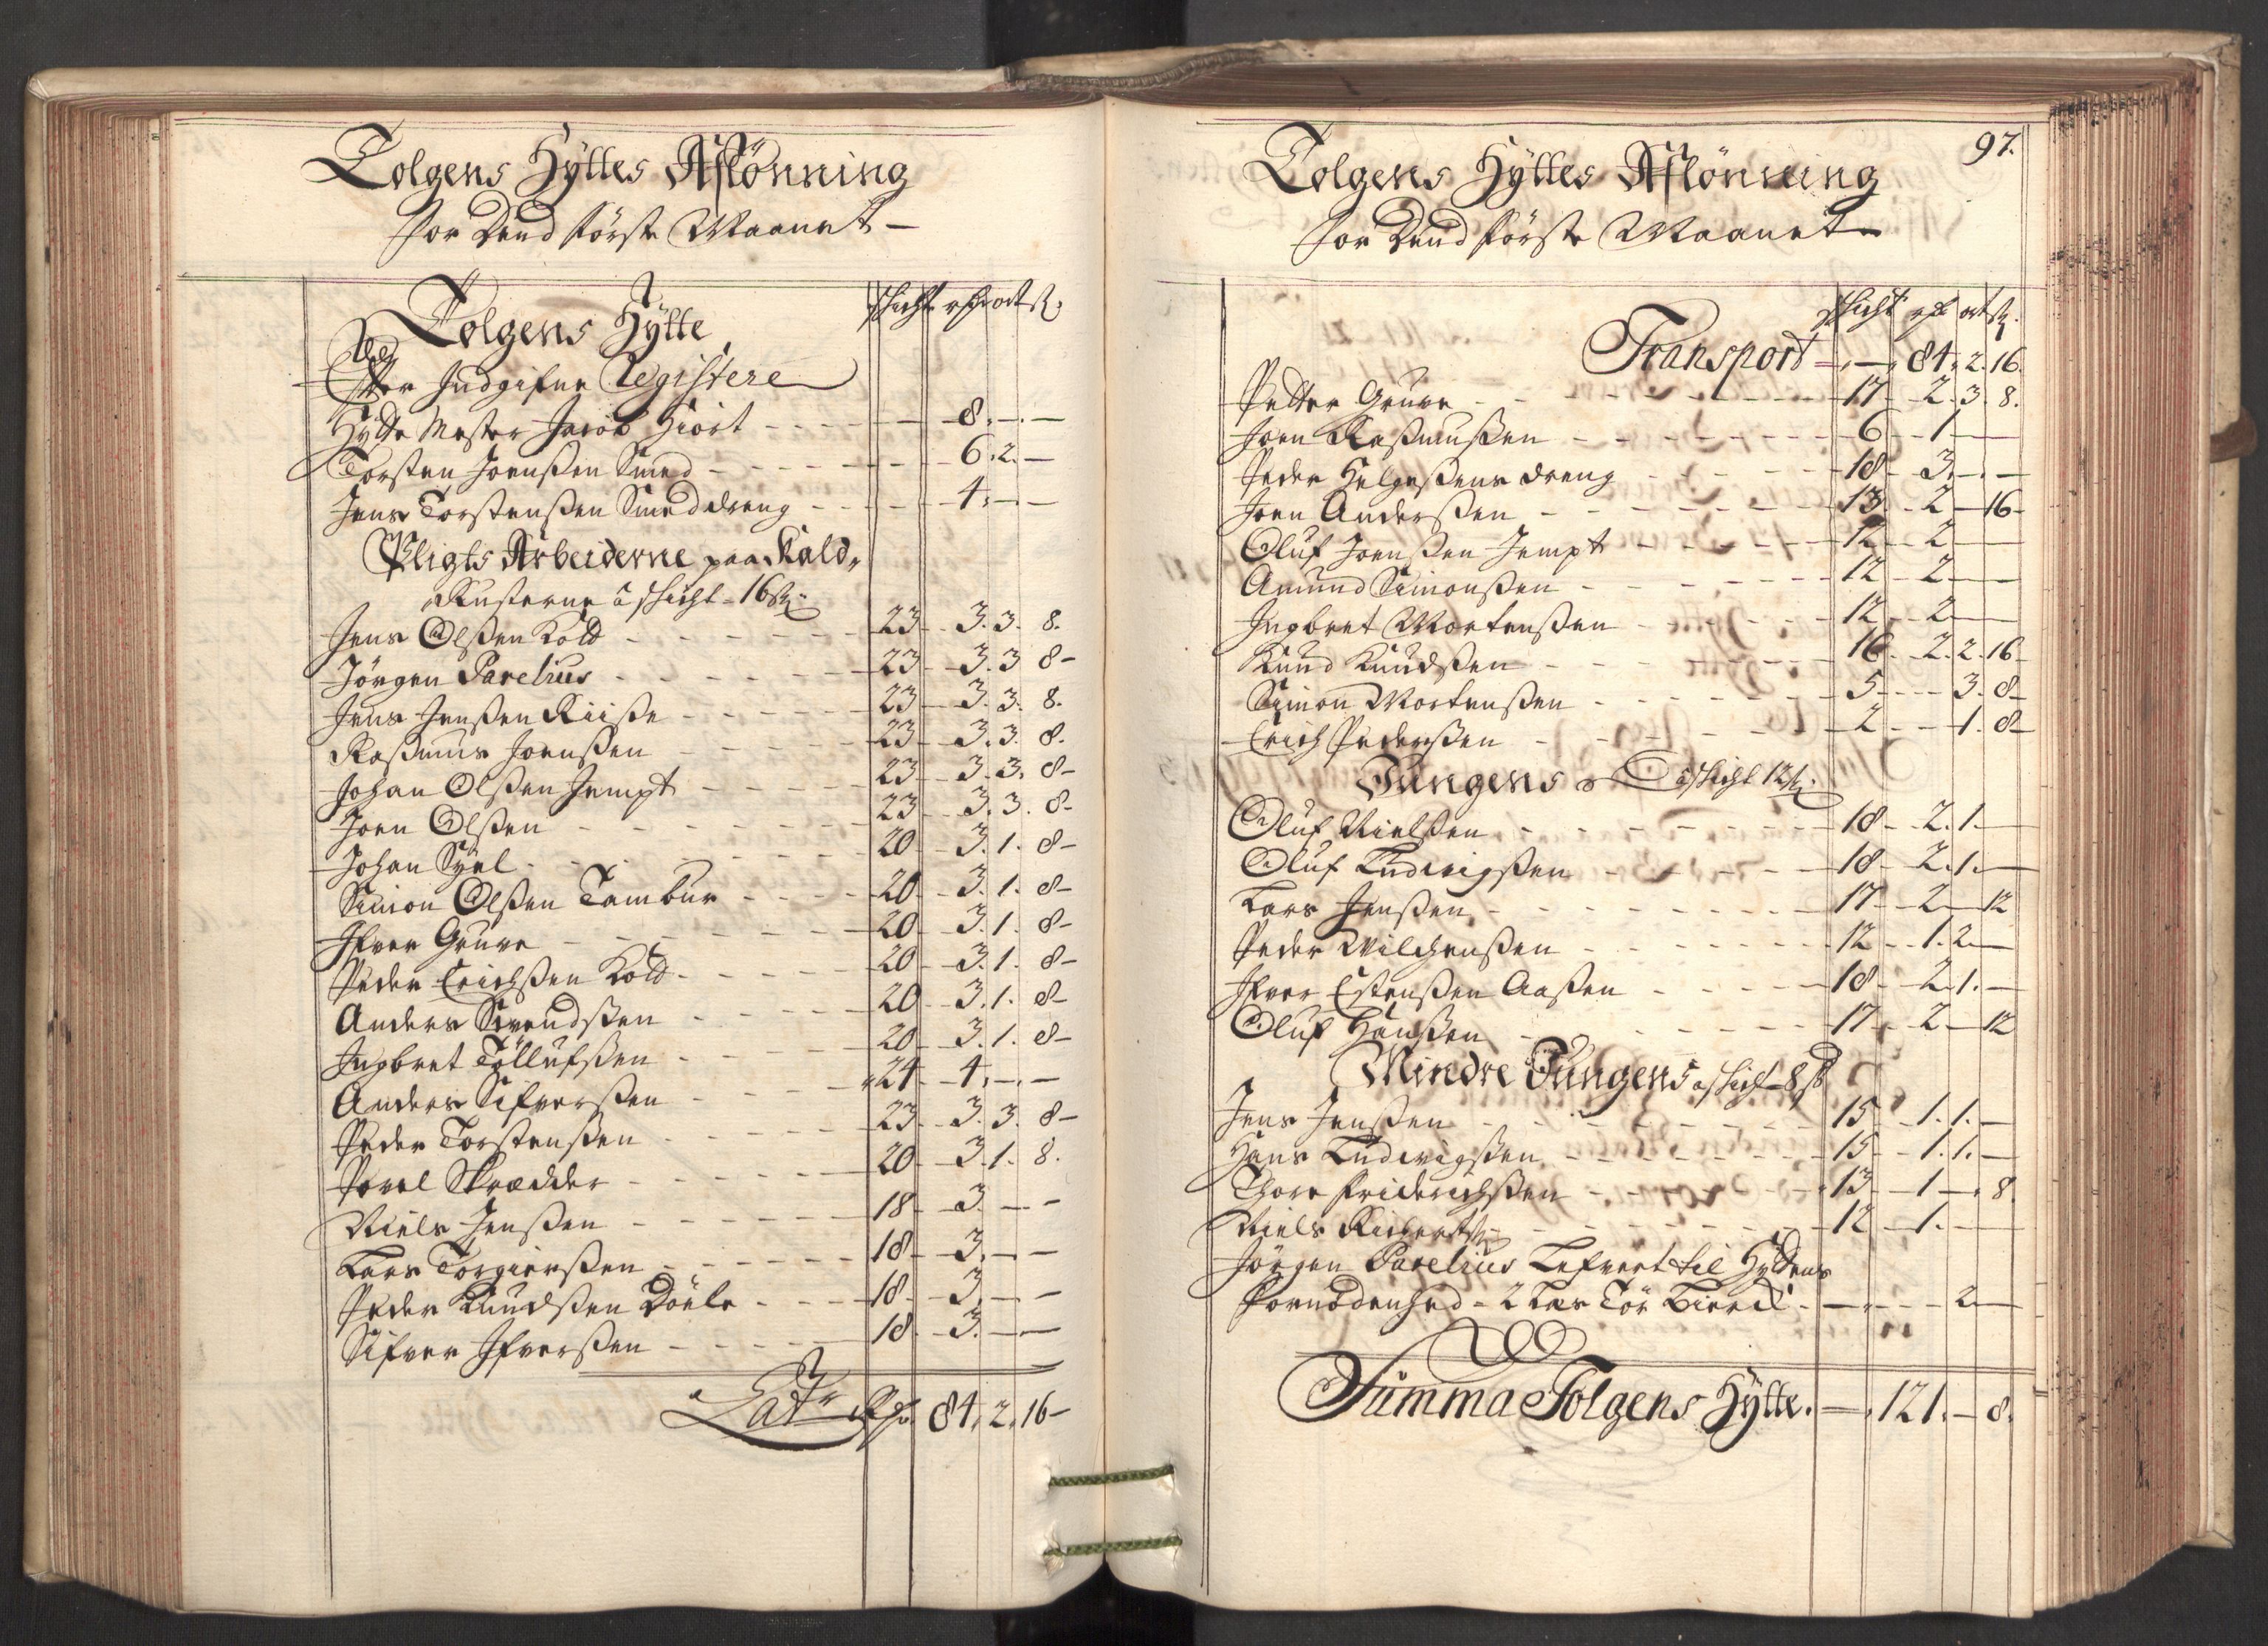 Tolgens Hÿttes Aflönning
for Dend förste Maanet
Tolgens Hÿtte
schicht rdr ort s
Efter Indgifne Registere
Hÿtte Mester Jacob Hiort - - - 8 . - . -
Torsten Joensßen Smed - - - 6 . 2 . -
Jens Torstensßen Smeddreng - - - 4 . - . -
Pligts Arbeiderne paa Kald
Rusterne â schicht - 16 s
Jens Olsßen Kold - - - 23 - 3 . 3 . 8 .
Jörgen Parelius - - - 23 - 3 . 3 8 -
Jens Jensßen Riise - - - 23 - 3 . 3 . 8 .
Rasmus Joensßen - - - 23 - 3 . 3 . 8 .
Johan Olsßen Jempt - - - 23 - 3 . 3 . 8 -
Joen Olsßen - - - 23 - 3 . 3 . 8 -
Johan Syel - - - 20 - 3 . 1 . 8 -
Simon Olsßen Tambur - - - 20 - 3 . 1 . 8 -
Ifver Gruve - - - 20 - 3 . 1 . 8 -
Peder Erichsßen Kold - - - 20 - 3 . 1 . 8 -
Anders Svendsßen - - - 20 - 3 . 1 . 8 -
Ingbret Töllufsßen - - - 20 - 3 . 1 . 8 -
Anders Sifversßen - - - 24 - 4 . - . -
Peder Torstensßen - - - 23 - 3 . 3 . 8 -
Povel Skrædder - - - 20 - 3 . 1 . 8 .
Niels Jensßen - - - 18 - 3 . - -
Lars Torgiersßen - - - 18 - 3 . - -
Peder Knudsßen Döele - - - 18 - 3 . - -
Sifver Ifversßen - - - 18 - 3 . - . -
Latr Rdr 84 . 2 . 16 -
97.
Tolgens Hÿttes Aflönning
for Dend förste Maanet
schicht rdr ort s.
Transport - . - . 84 . 2 . 16.
Petter Gruve - - - 17 - 2 . 3 . 8 .
Joen Rasmusßen - - - 6 - 1 - -
Peder Helgesßens dreng - - - 18 - 3 . - . -
Joen Andersßen - - - 13 - 2 - 16 -
Oluf Joensßen Jempt - - - 12 - 2 - -
Amund Simonsßen - - - 12 - 2 - -
Ingbret Mortensßen - - - 12 - 2 - -
Knud Knudsßen - - - 16 - 2 . 2 . 16 -
Simon Mortensßen - - - 5 - - 3 . 8 -
Erich Pedersßen - - - 2 - - 1 . 8 -
Jungens â schicht 12 s.
Oluf Nielsßen - - - 18 - 2 . 1 . -
Oluf Ludvigsßen - - - 18 - 2 . 1 . -
Lars Jensßen - - - 17 - 2 - 12
Peder Wilchensßen - - - 12 - 1 . 2 . -
Ifver Estensßen Aasßen - - - 18 - 2 . 1 . -
Oluf Hansßen - - - 17 - 2 - 12
Mindre Jungens â schicht - 8 s
Jens Jensßen - - - 15 - 1 . 1 . -
Hans Ludvigsßen - - - 15 - 1 . 1 . -
Thore Friderichsßen - - - 13 - 1 - . 8 .
Niels - - - 12 - 1 . -
Jörgen Parelius Lefvert til Hÿttens
Fornödenhed - 2 Læs Tör - - - 2 -
Summa Tolgens Hÿtte . - . 121 . - 8 .